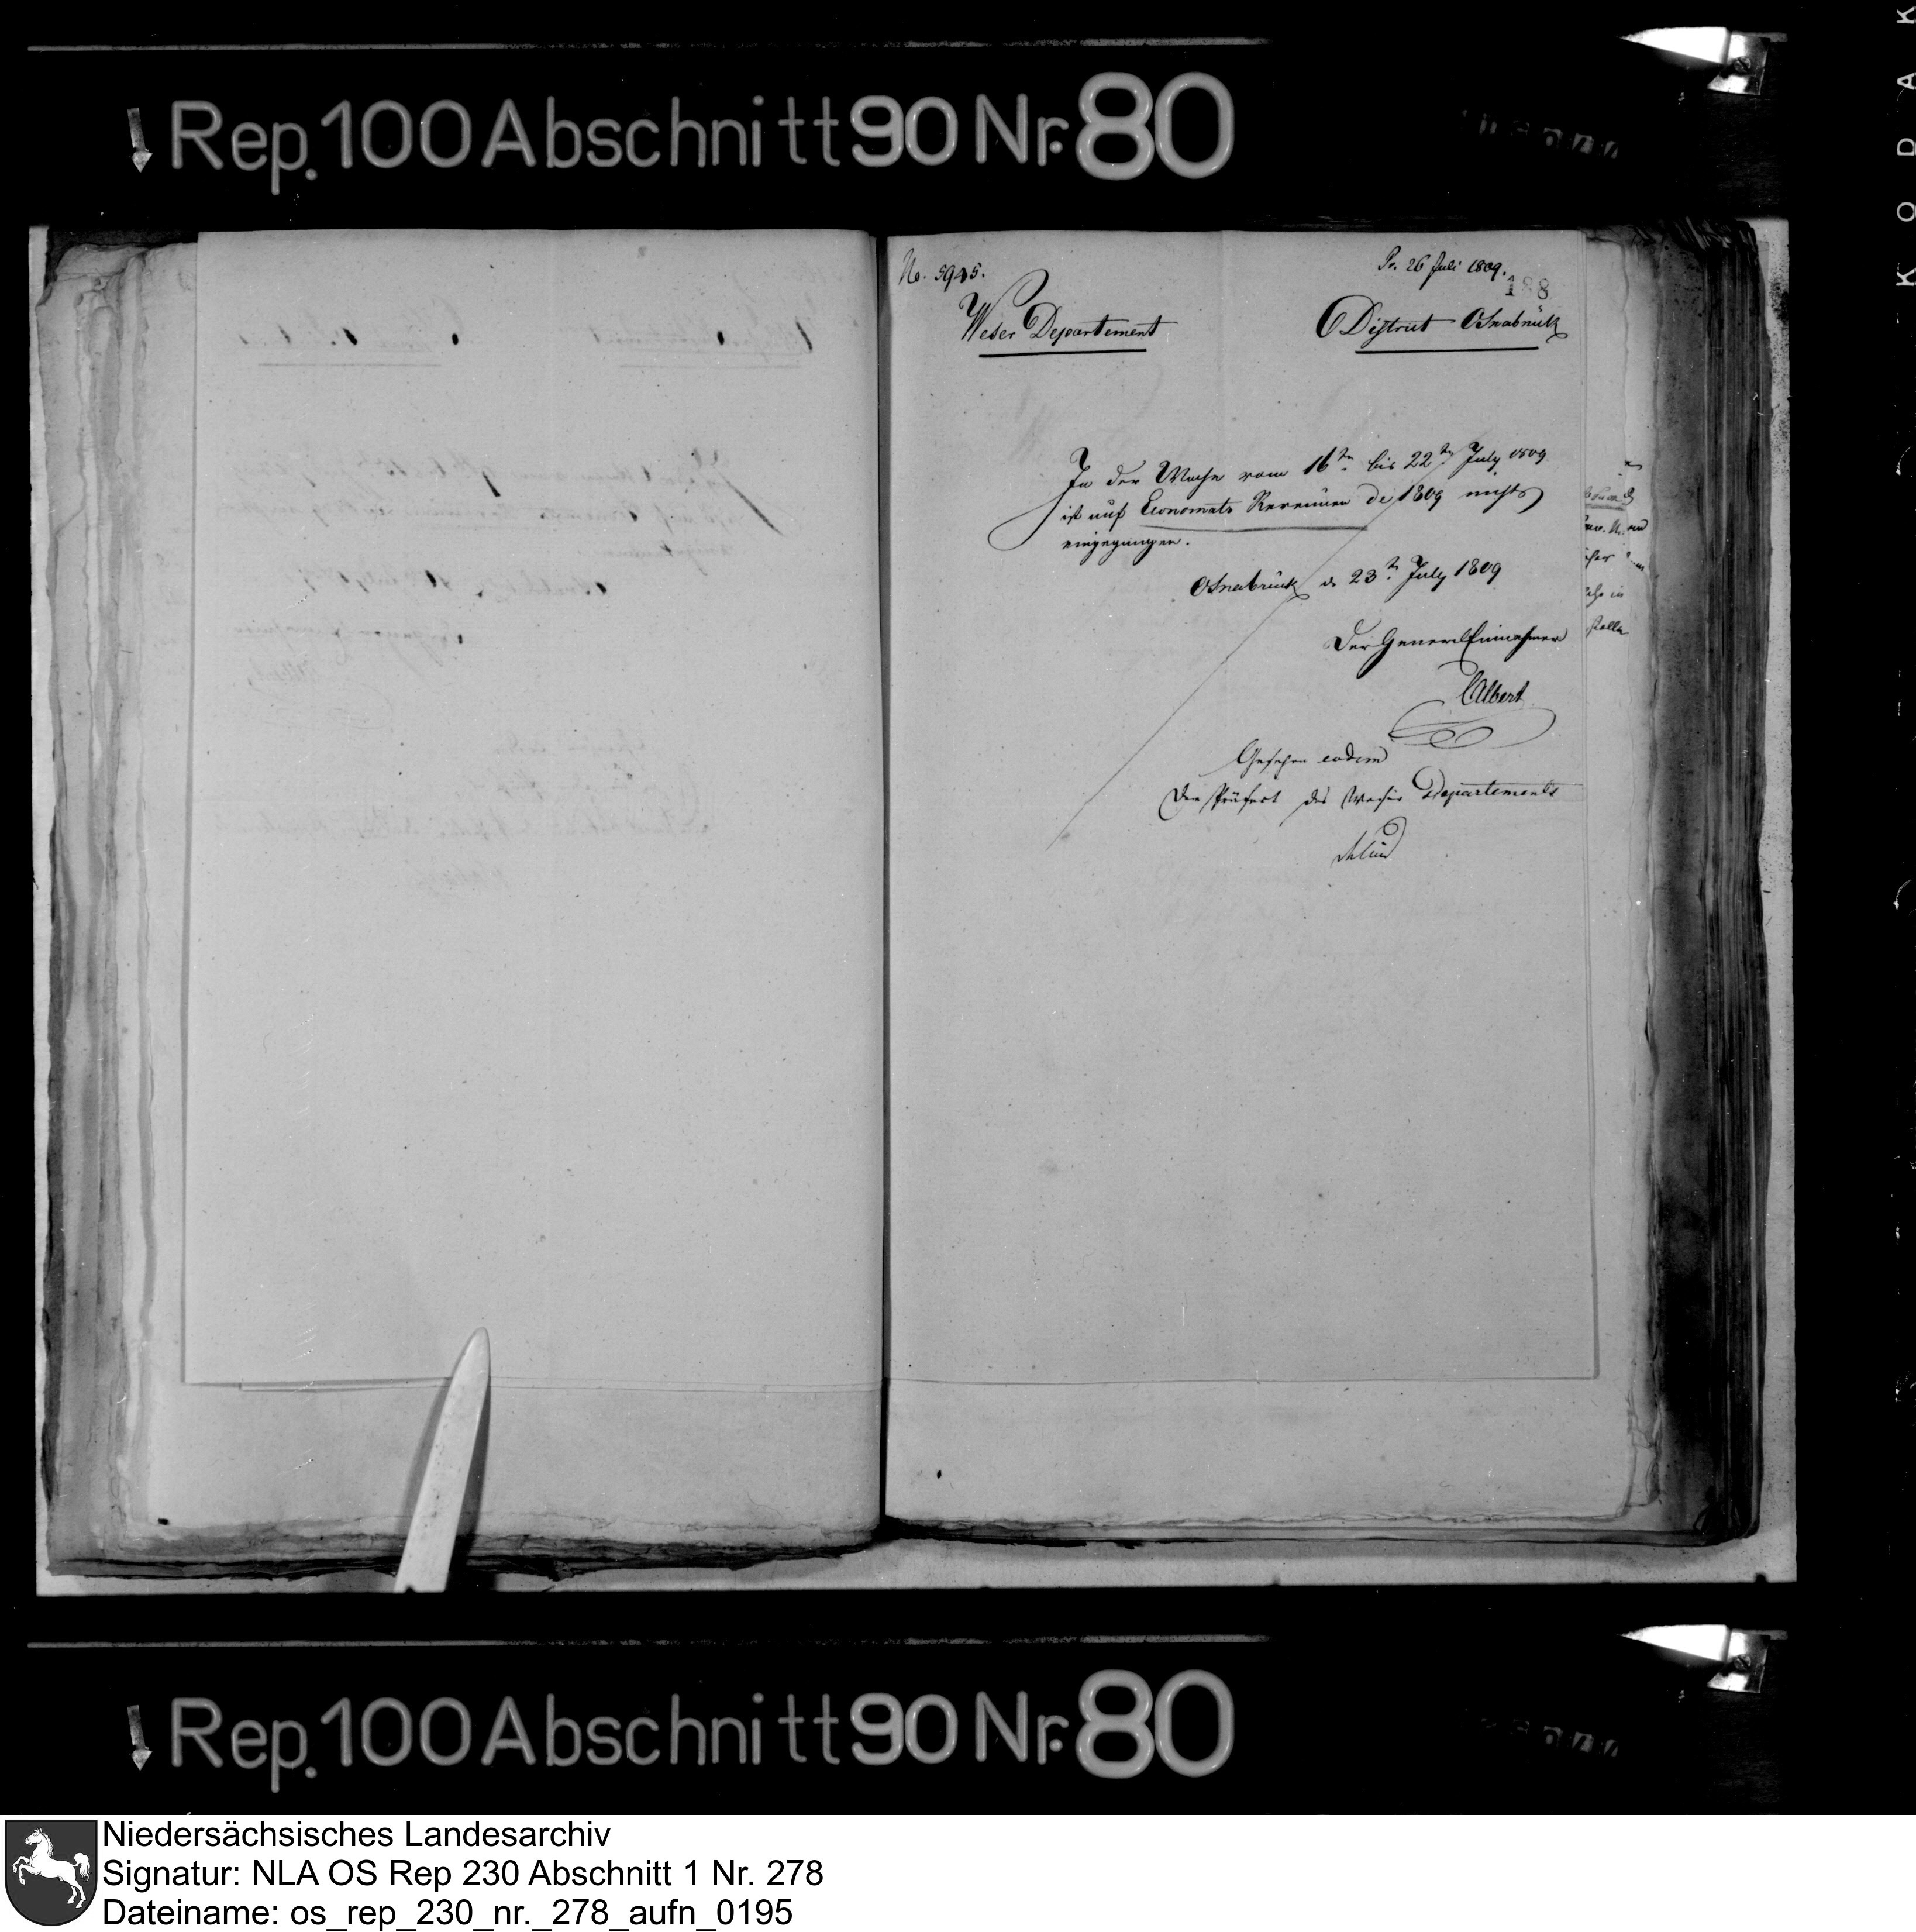 Rep. 100 Abschnitt 90 Nr. 80
KODAK
No. 5945.
Pr. 26 Juli 1809.
188
Weser Departement
District Osnabrück
In der Woche vom 16ten bis 22ten July 1809
ist auf Economats Revenüen de 1809 nichts
eingegangen.
Osnabrück d. 23t. July 1809
Der General Einnehmer
Albert
Gesehen eodem
Der Präfect des Weser Departements
Rep. 100 Abschnitt 90 Nr. 80
Niedersächsisches Landesarchiv
Signatur: NLA OS Rep 230 Abschnitt 1 Nr. 278
Dateiname: os_rep_230_nr._278_aufn_0195